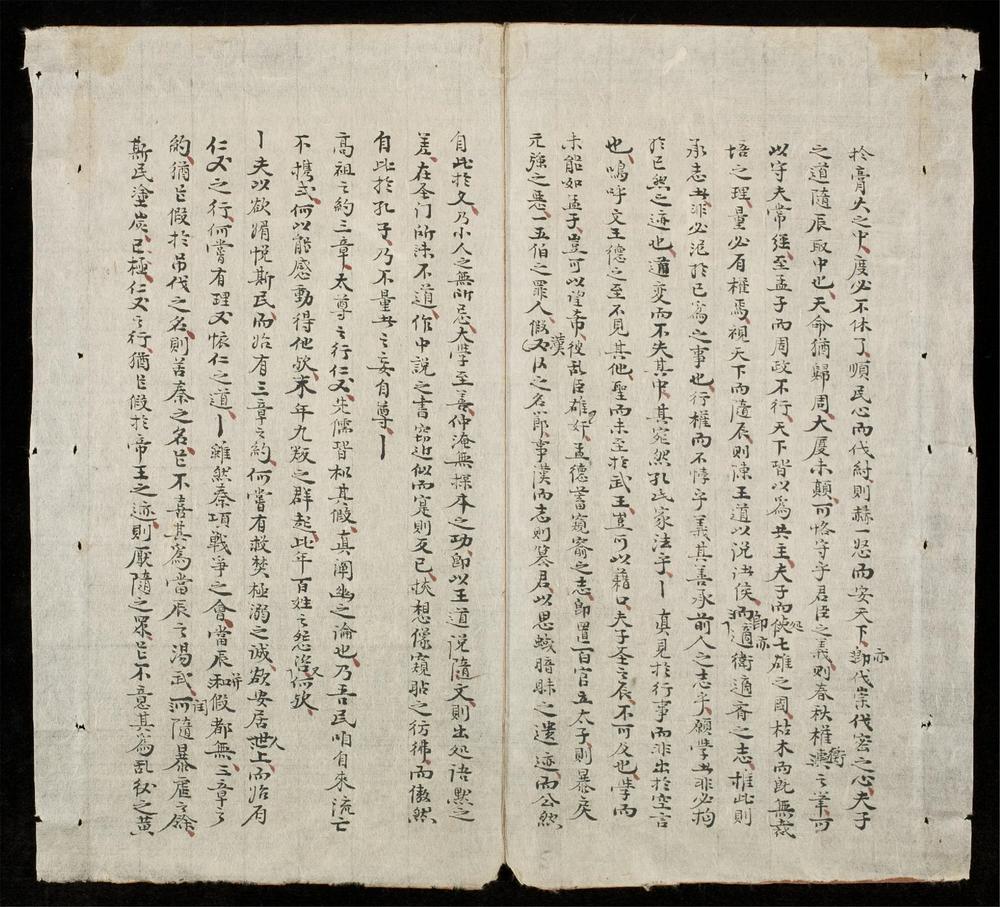 於膏大之中度必不休了順民心而伐紂則赫一怒而安天下即伐崇伐密之心夫子
之道隨辰取中也天命猶歸周大厦未顛可恪守乎君臣之義則春秋權衡之筆可
以守夫常經至孟子而周政不行天下皆以為共主夫子而使七雄之國枯木而既無栽
培之理量必有權焉視天下而隨辰則陳王道以說諸侯即亦適衛適齊之志推此則
承志者非必泥於已為之事也行權而不悖乎義其善承前人之志乎願學者非必拘
於已然之迹也道变而不失其中其宛然孔氏家法乎丨真見於行事而非出於空言
也嗚呼文王德之至不見其他聖而未至於武王豈可以藉口夫子圣之辰不可及也學而
未能如孟子豈可以望希彼乱臣雄奸孟德蓄窺窬之志即置百官五大子則暴戾
元強之惡一五伯之罪人假漢臣之名節事漢而志則篡君以思蜮暗昧之遺迹而公然
自比於文乃小人之無所忌大學至善仲淹無探本之功即以王道说隨文則出処语默之
差在圣门所深不道作中説之書窃近似而寔則反已挾想像窺貼之彷彿而傲然
自比於孔子乃不量者之妄自尊丨
高祖之約三章太尊之行仁义先儒皆松其假真阐幽之論也乃吾民咱自來流亡
不携貳何以能感動得他欤末年九叛之群起此年百姓之怨咨欤
丨夫以欲媚悅斯民而始有三章之約何嘗有救焚極溺之诚欲安居世上而始有
仁义之行何嘗有理义怀仁之道丨雖然秦項戰爭之會當辰和假都無三章之
約猶㠯假於吊伐之名則苦秦之名㠯不喜其為當辰之湯武河隨暴虐之餘
斯民塗炭已極仁义之行猶㠯假於帝王之迹則厭隨之眾㠯不意其為乱秋之黄